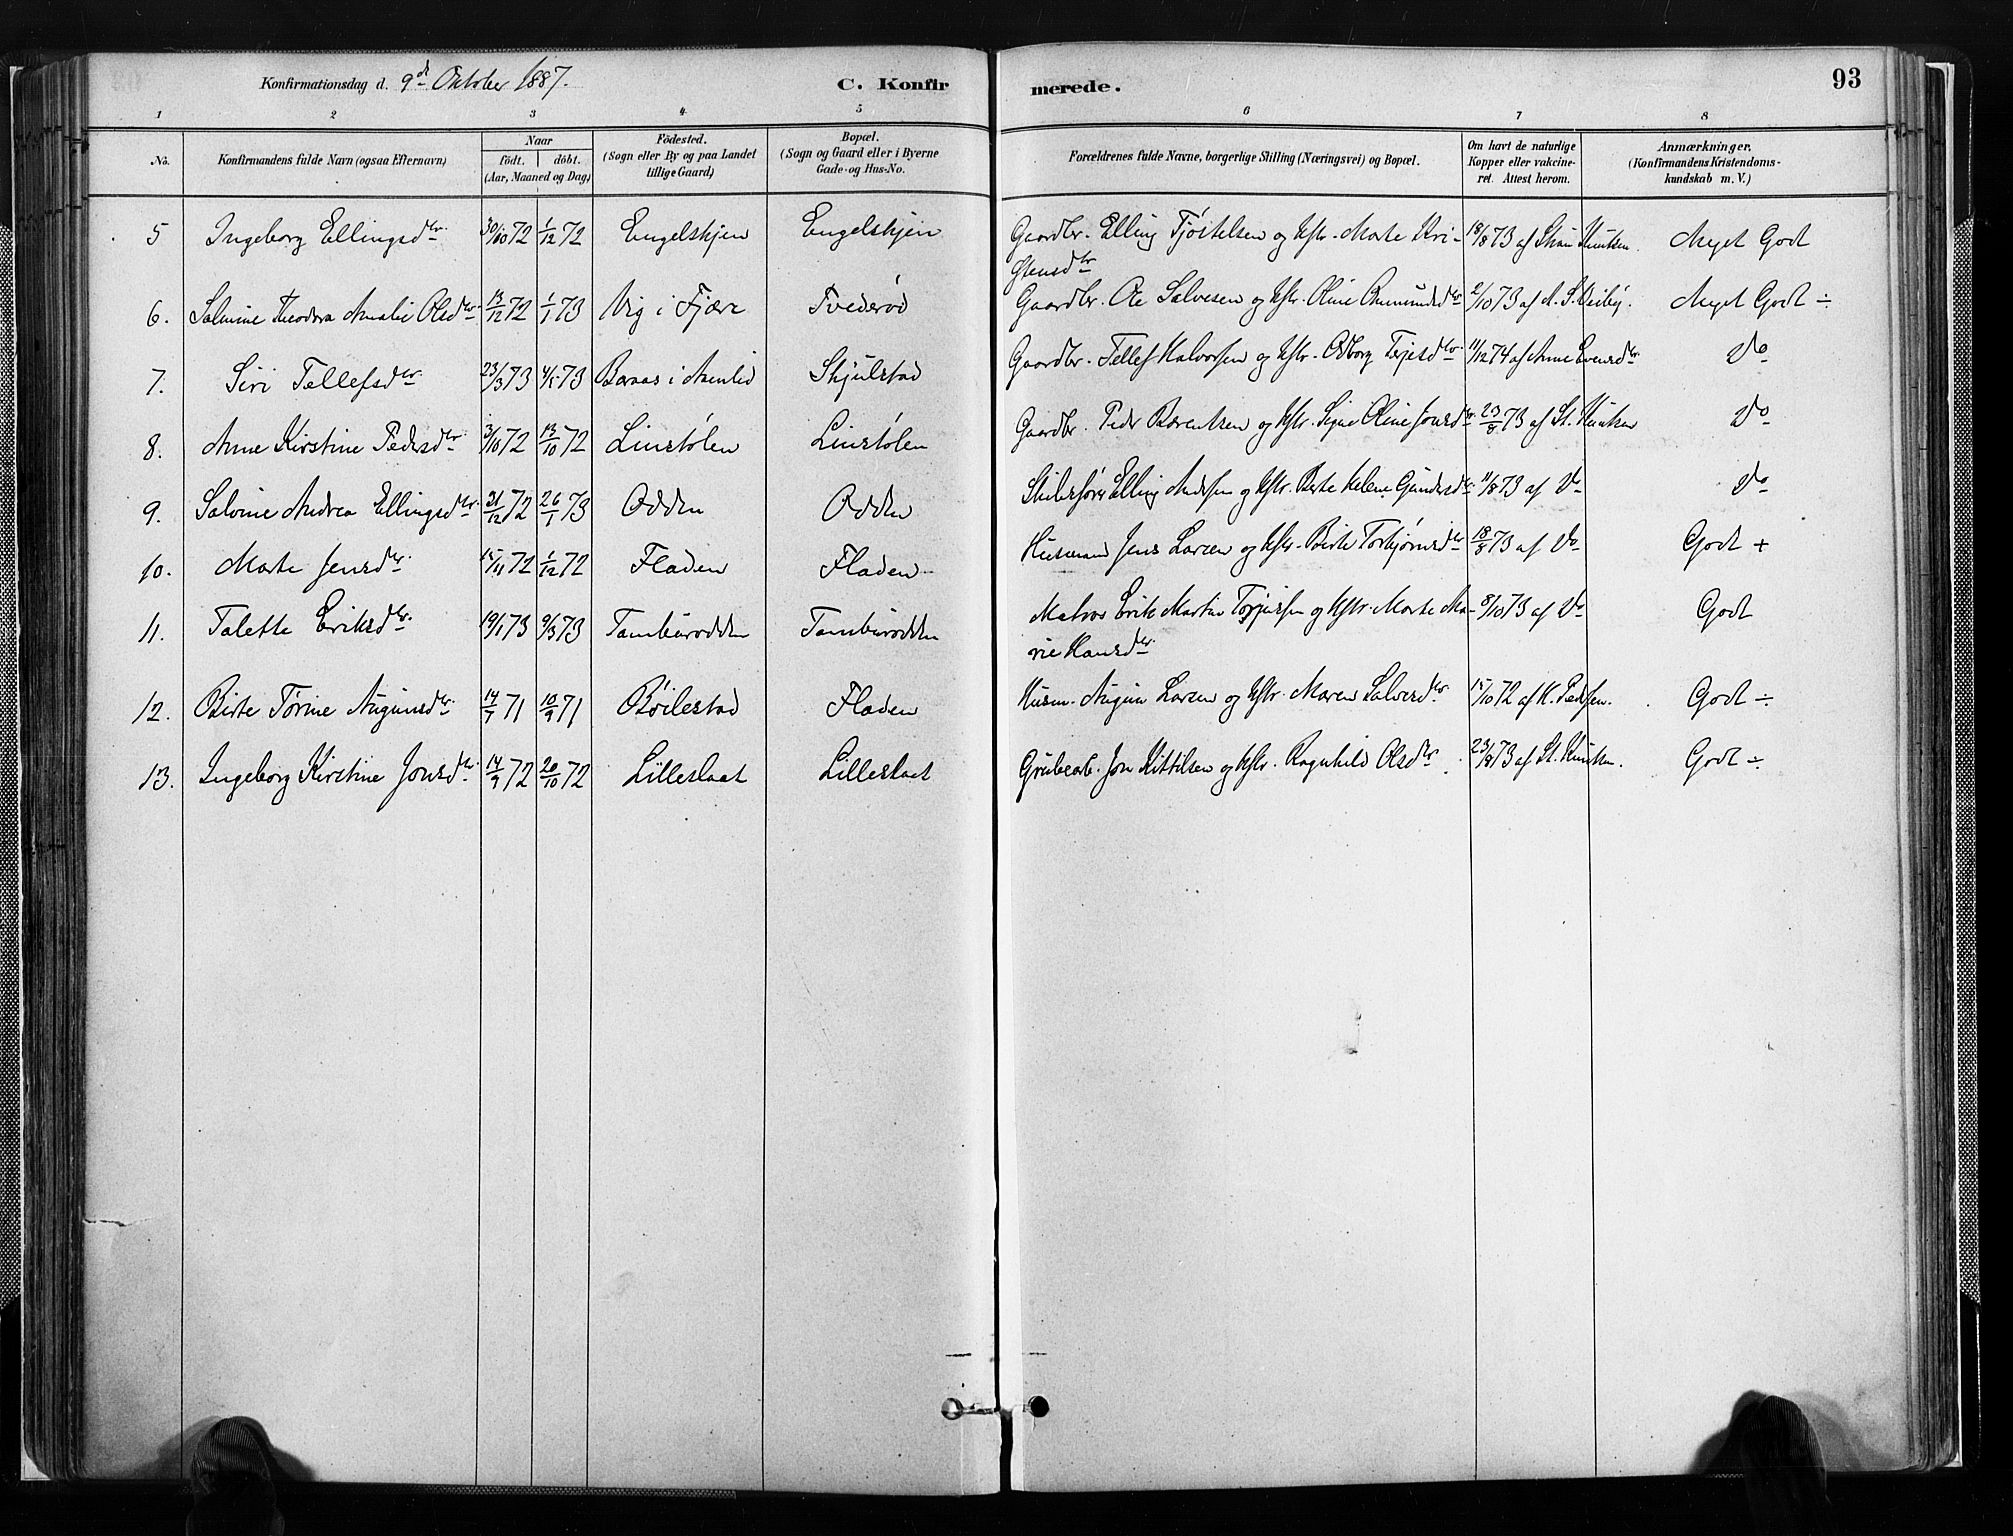 Konfirmationsdag d. 9de Oktober 1887. C. Konfir merede. 93
1 2 3 4 5 6 7 8
No. Konfirmandens fulde Navn (ogsaa Efternavn) Naar födt. döbt. (Aar, Maaned og Dag) Födested. (Sogn eller By og paa Landet tillige Gaard) Bopæl. (Sogn og Gaard eller i Byerne Gade- og Hus-No. Forældrenes fulde Navne, borgerlige Stilling (Næringsvei) og Bopæl. Om havt de naturlige Kopper eller vakcineret. Attest herom. Anmærkninger. (Konfirmandens Kristendomskundskab m. V.)
5 Ingeborg Ellingsdtr. 30/10 72 1/12 72 Engelskjen Engelskjen Gaardbr. Elling Tjöstelsen og Hstr. Marte Kri- 18/8 73 af Knutsen. Meget Godt
stensdtr
6. Salmine Theodora Amalie Olsdtr. 13/12 72 1/1 73 Vig i Fjære Tvederöd Gaardbr. Ole Salvesen og Hstr. Oline 2/10 73 af A. S. Meget Godt ÷
7. Siri Tellefsdtr. 23/3 73 4/5 73 i Aamlid Skjulstad Gaardbr. Tellef Halvorsen og Hstr. Asborg Terjesdtr. 11/12 74 af Anne Evensdtr. Do
8. Anne Kirstine Pedersdtr. 3/10 72 13/10 72 Linstölen Linstölen Gaardbr. Peder Berentsen og Hstr. Signe Oline Jonsdtr. 23/8 73 af St. Knutsen Do
9. Salvine Andrea Ellingsdtr. 31/12 72 26/1 73 Odden Odden Skibsförer Elling Andersen og Hstr. Berte Helene Gundersdtr. 11/8 73 af Do Do
10. Marte Jensdtr. 15/11 72 1/12 72 Fladen Fladen Husmand Jens Larsen og Hstr. Birte Torbjörnsdtr 18/8 73 af Do Godt +
11. Talette Eriksdtr. 19/1 73 9/3 73 Tamburodden Tamburodden Matros Erik Martin Terjersen og Hstr. Marte Ma- 8/10 73 af Do Godt
rie Hansdtr.
12. Birte Törine Augunsdtr. 14/7 71 10/9 71 Böilestad Fladen Husm. Augun Larsen og Hstr. Maren Salvesdtr. 15/10 72 af K. Pedersen. Godt ÷
13. Ingeborg Kirstine Jonsdtr. 14/9 72 20/10 72 Lilleslaat Lilleslaat Grubearb. Jon Kittilsen og Hstr. Ragnhild Olsdtr 23/8 73 af St. Knutsen. Godt ÷